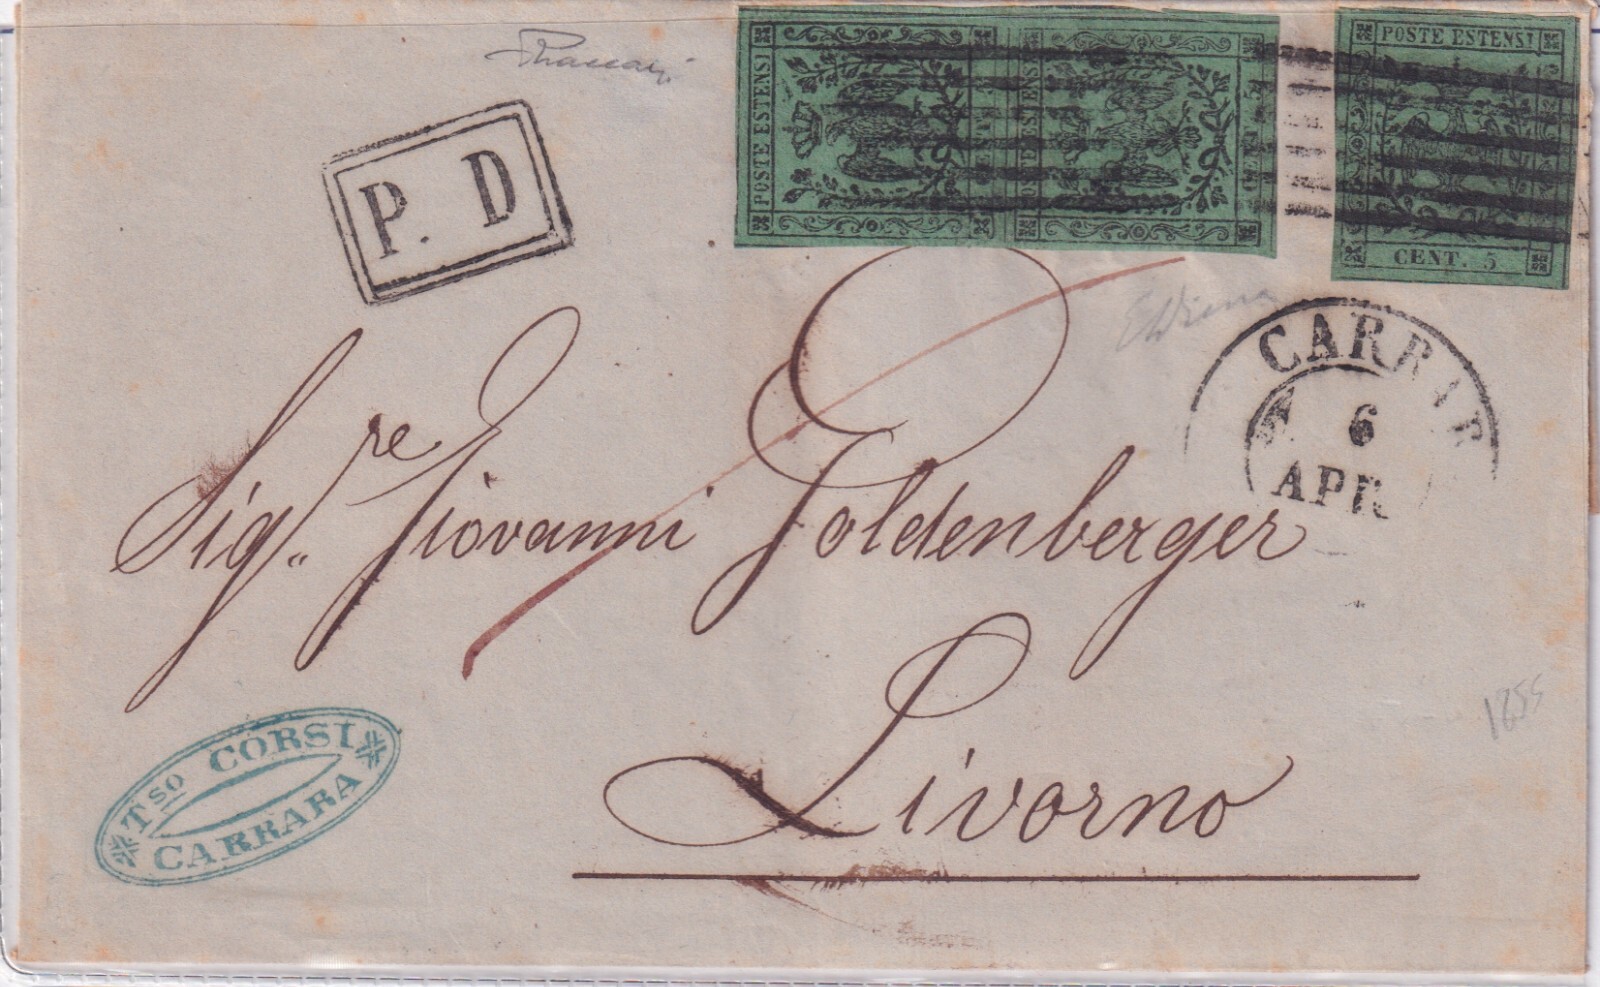 POSTE ESTENSI
POSTE ESTENSI
POSTE ESTENSI
CENT. 5
P. D
CARRAR
6
APR
Sig.re Giovanni Goldenberger
Livorno
1855
Tso CORSI
CARRARA